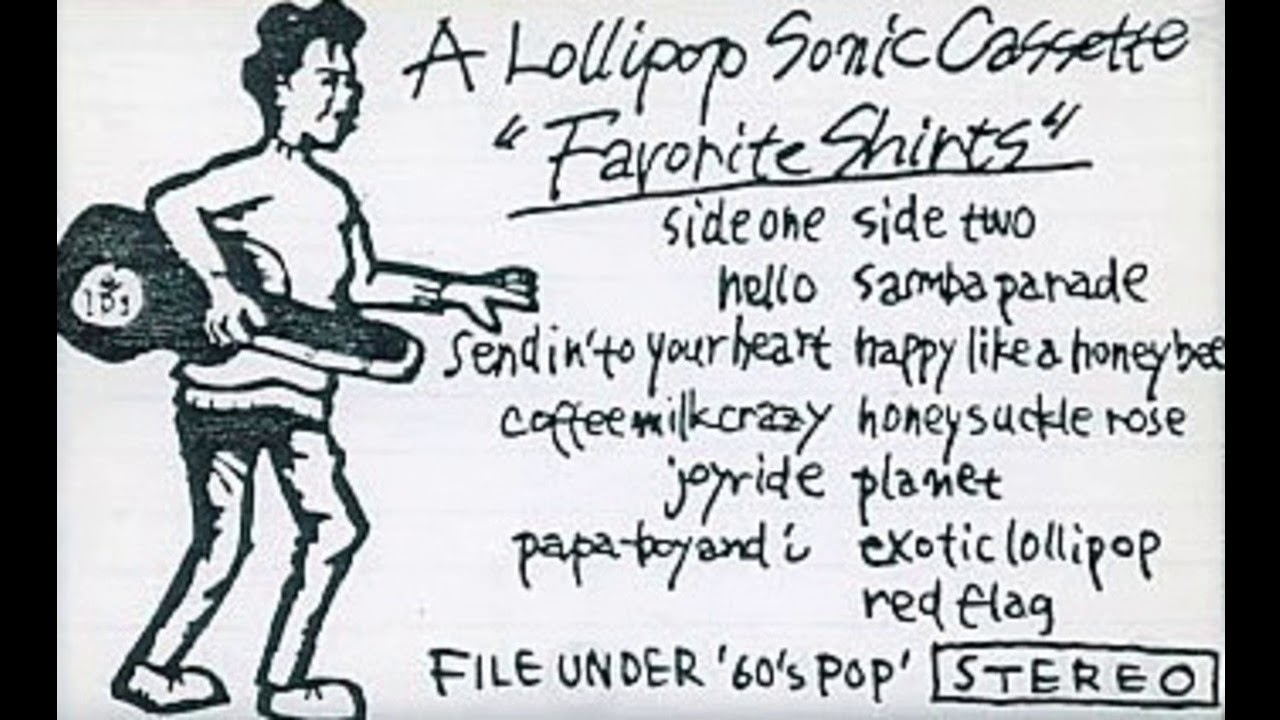 A Lollipop Sonic Cassette
"Favorite Shirts"
side one side two
hello samba parade
sendin' to your heart happy like a honey bee
coffeemilk crazy honeysuckle rose
joyride planet
papa-boy and i exotic lollipop
red flag
FILE UNDER '60's POP' STEREO